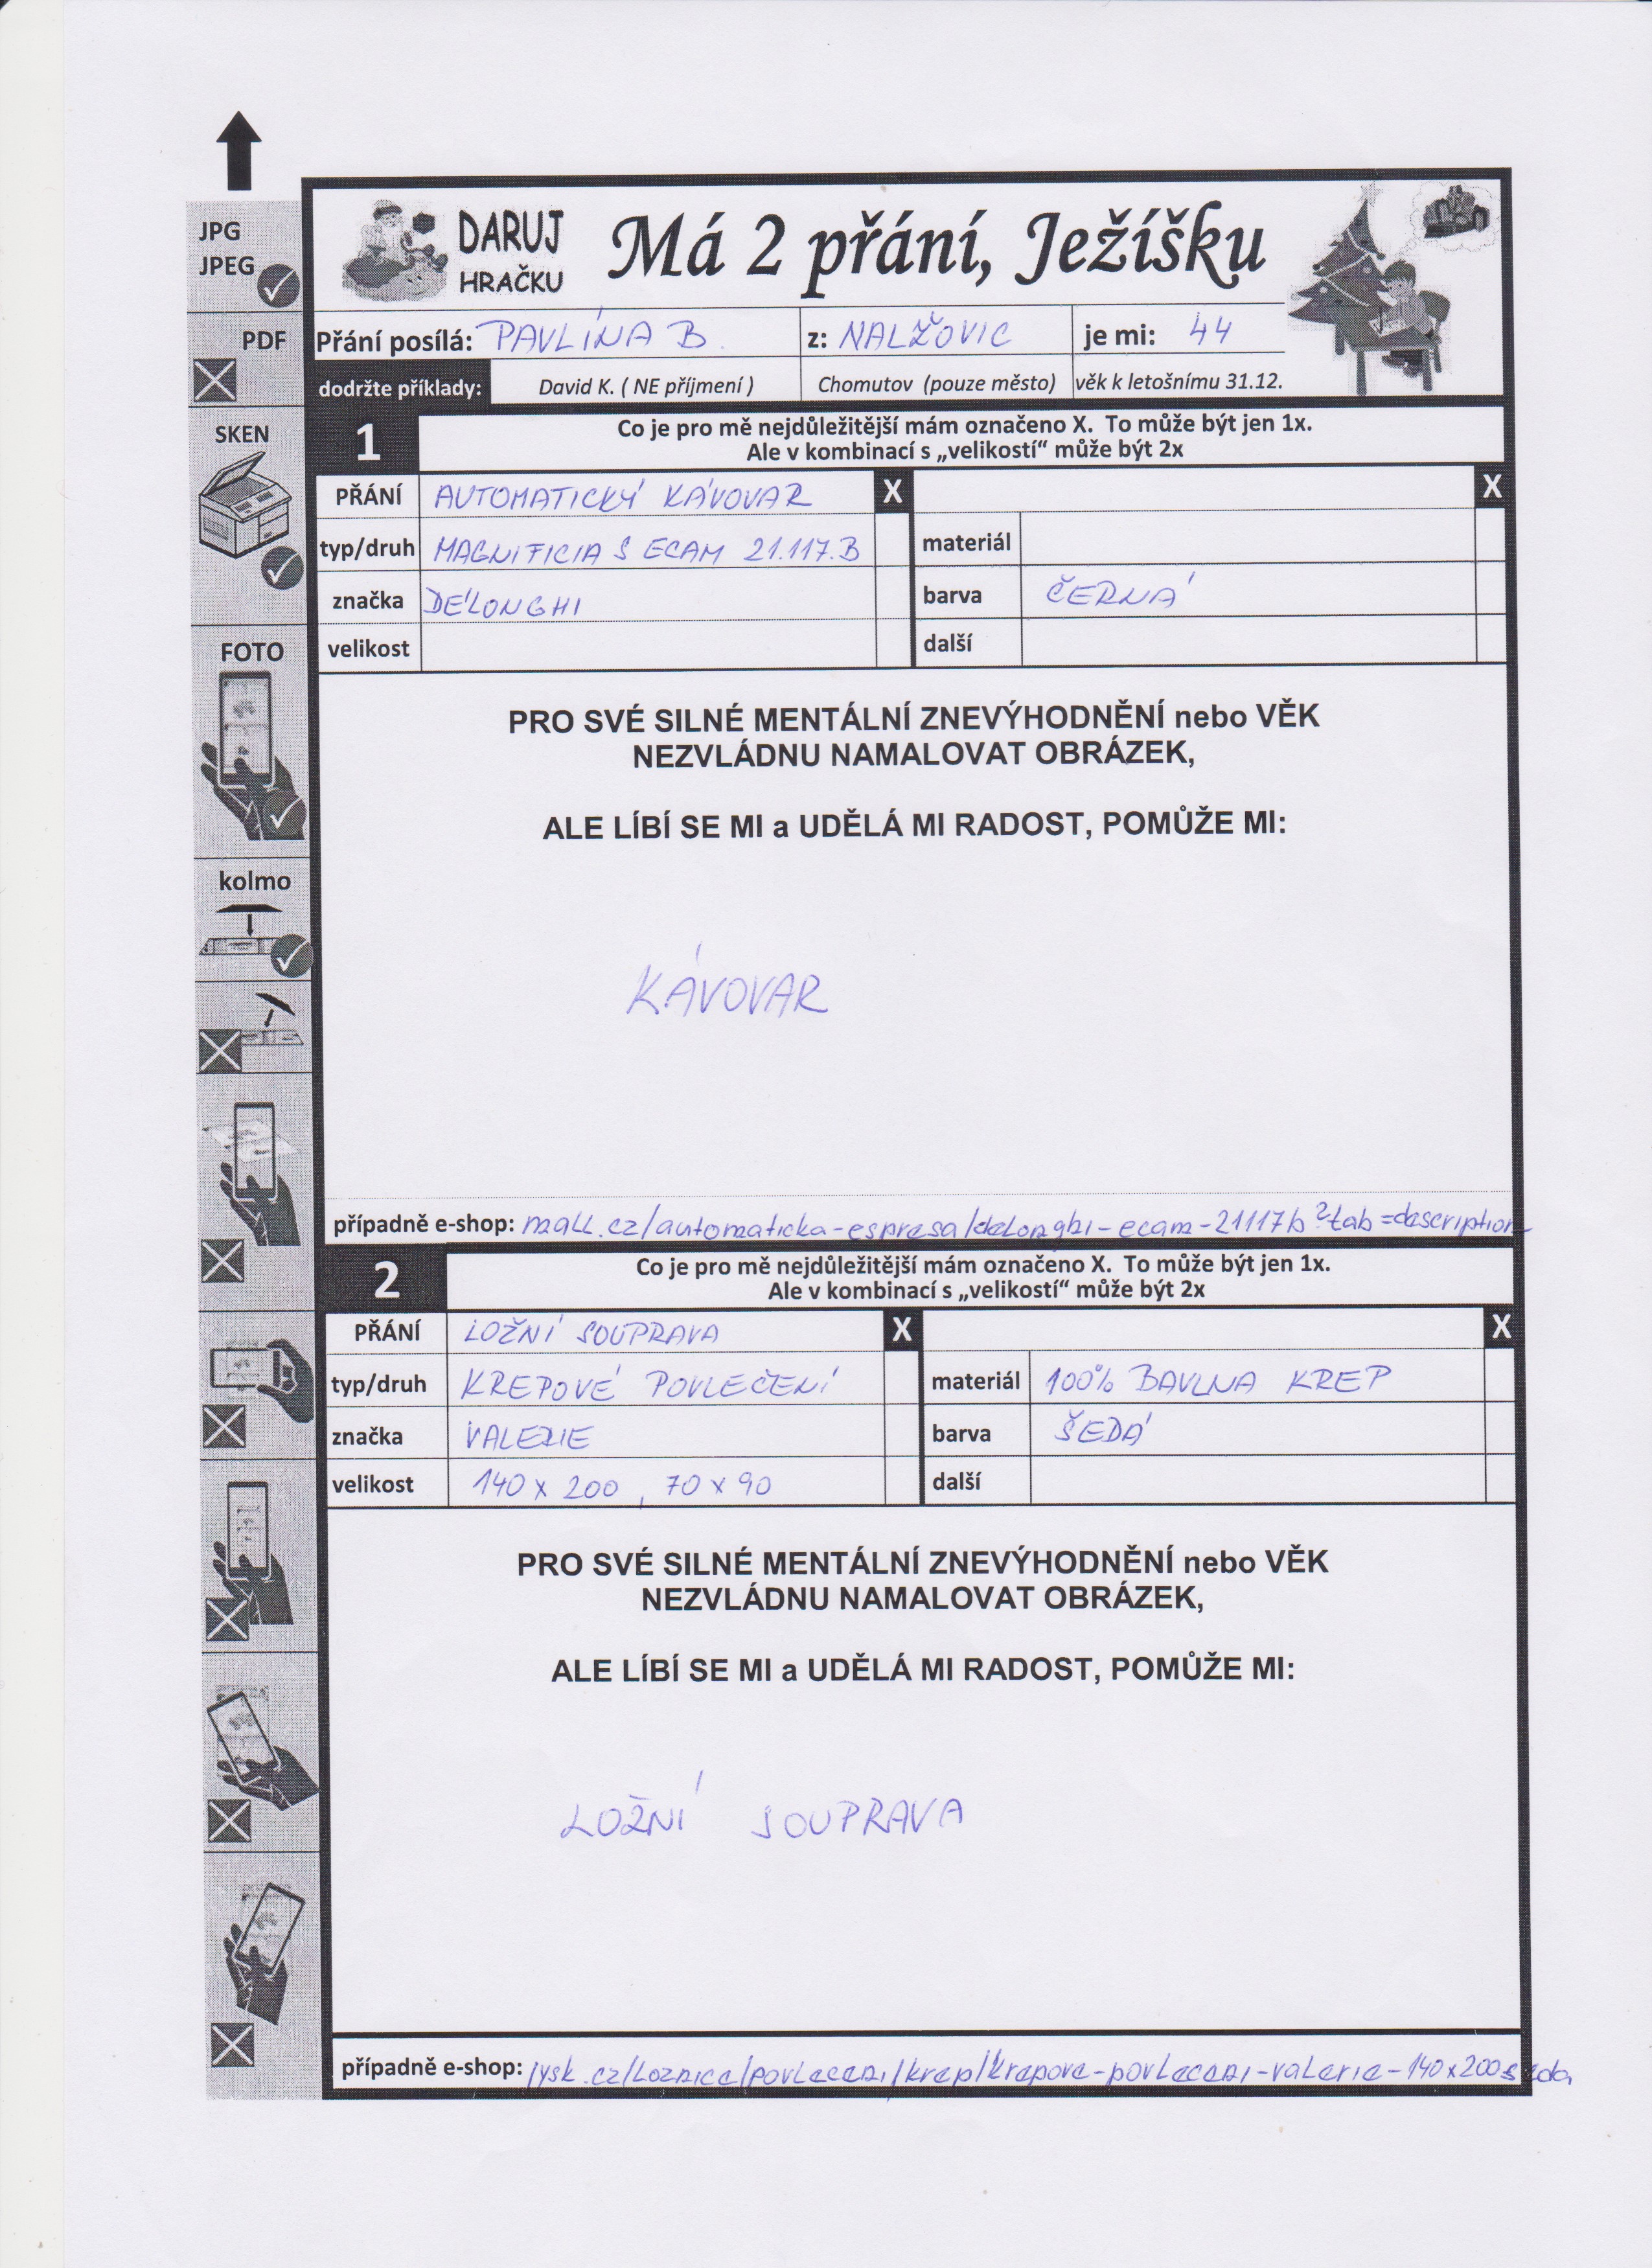 JPG
JPEG
PDF
SKEN
FOTO
kolmo
DARUJ
HRAČKU
Má 2 přání, Ježíšku
Přání posílá: PAVLÍNA B. z: NALŽOVIC je mi: 44
dodržte příklady: David K. ( NE příjmení ) Chomutov (pouze město) věk k letošnímu 31.12.
1 Co je pro mě nejdůležitější mám označeno X. To může být jen 1x.
Ale v kombinací s „velikostí“ může být 2x
PŘÁNÍ AUTOMATICKÝ KÁVOVAR X X
typ/druh MAGNIFICIA S ECAM 21.117.B materiál
značka DÉLONGHI barva ČERNÁ
velikost další
PRO SVÉ SILNÉ MENTÁLNÍ ZNEVÝHODNĚNÍ nebo VĚK
NEZVLÁDNU NAMALOVAT OBRÁZEK,
ALE LÍBÍ SE MI a UDĚLÁ MI RADOST, POMŮŽE MI:
KÁVOVAR
případně e-shop: mall.cz/automaticka-espresa/delonghi-ecam-21117b?tab=description
2 Co je pro mě nejdůležitější mám označeno X. To může být jen 1x.
Ale v kombinací s „velikostí“ může být 2x
PŘÁNÍ LOŽNÍ SOUPRAVA X X
typ/druh KREPOVÉ POVLEČENÍ materiál 100% BAVLNA KREP
značka VALERIE barva ŠEDÁ
velikost 140 x 200 , 70 x 90 další
PRO SVÉ SILNÉ MENTÁLNÍ ZNEVÝHODNĚNÍ nebo VĚK
NEZVLÁDNU NAMALOVAT OBRÁZEK,
ALE LÍBÍ SE MI a UDĚLÁ MI RADOST, POMŮŽE MI:
LOŽNÍ SOUPRAVA
případně e-shop: jysk.cz/loznice/povleceni/krep/krepove-povleceni-valerie-140x200seda